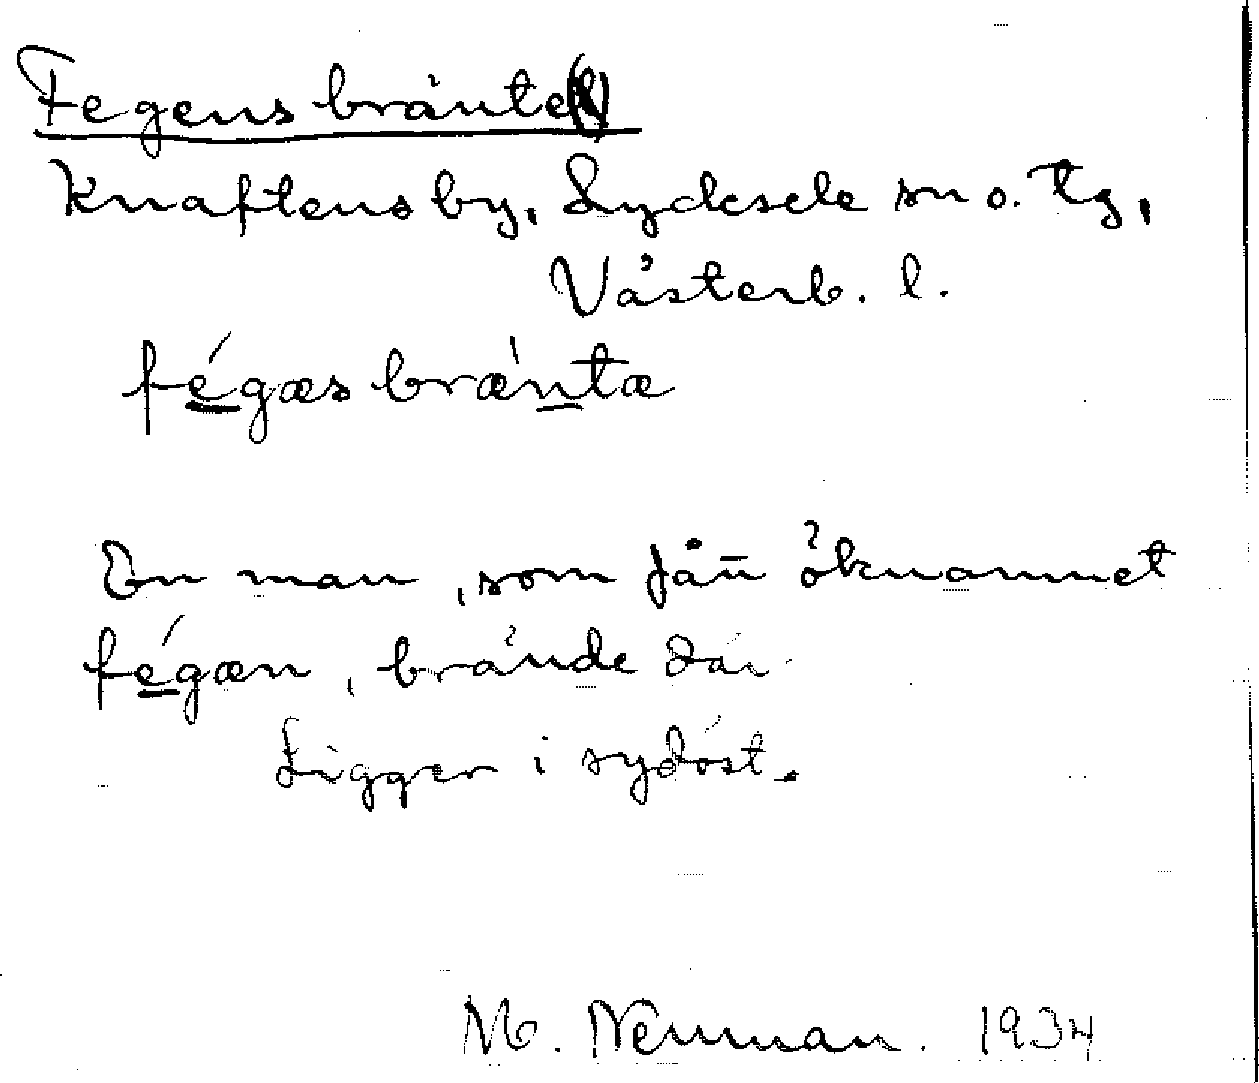 Fegensbränte(t)
Knaftens by, Lycksele sn o. tg,
Västerb. l.
fégæsbræ'nta
En man, som fått öknamnet
fégæn, brände där
Ligger i sydöst.
M. Nenman. 1934